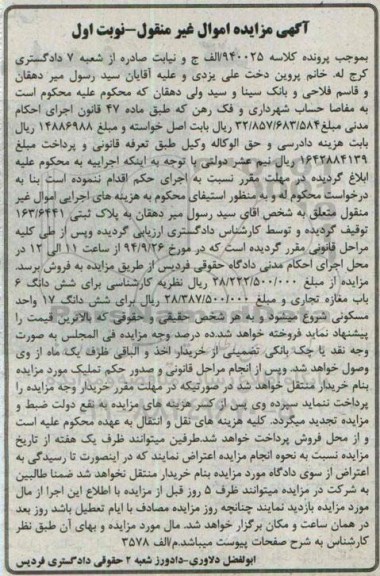 آگهی مزایده اموال غیر منقول-نوبت اول
بموجب پرونده کلاسه ۹۴۰۰۲۵/الف ج و نیابت صادره از شعبه ۷ دادگستری
کرج له. خانم پروین دخت علی یزدی و علیه آقایان سید رسول میر دهقان
و قاسم فلاحی و بانک سینا و سید ولی دهقان که محکوم علیه محکوم است
به مفاصا حساب شهرداری و فک رهن که طبق ماده ۴۷ قانون اجرای احکام
مدنی مبلغ۳۲/۸۵۷/۶۸۳/۵۸۴ ریال بابت اصل خواسته و مبلغ ۱۴۸۸۶۹۸۸ ریال
بابت هزینه دادرسی و حق الوکاله وکیل طبق تعرفه قانونی و پرداخت مبلغ
۱۶۴۲۸۸۴۱۳۹ ریال نیم عشر دولتی با توجه به اینکه اجراییه به محکوم علیه
ابلاغ گردیده در مهلت مقرر نسبت به اجرای حکم اقدام ننموده است بنا به
درخواست محکوم له و به منظور استیفای محکوم به هزینه های اجرایی اموال غیر
منقول متعلق به شخص اقای سید رسول میر دهقان به پلاک ثبتی ۱۶۳/۶۴۴۱
توقیف گردیده و توسط کارشناس دادگستری ارزیابی گردیده وپس از طی کلیه
مراحل قانونی مقرر گردیده است که در مورخ ۹۴/۹/۲۶ از ساعت ۱۱ الی ۱۲ در
محل اجرای احکام مدنی دادگاه حقوقی فردیس از طریق مزایده به فروش برسد.
مزایده از مبلغ ۳۸/۲۲۲/۵۰۰/۰۰۰ ریال نظریه کارشناسی برای شش دانگ ۶
باب مغازه تجاری و مبلغ ۲۸/۳۸۷/۵۰۰/۰۰۰ ریال برای شش دانگ ۱۷ واحد
مسکونی شروع میشود و به هر شخص حقیقی و حقوقی که بالاترین قیمت را
پیشنهاد نماید فروخته خواهد شد.ده درصد وجه مزایده فی المجلس به صورت
وجه نقد یا چک بانکی تضمینی از خریدار اخذ و الباقی ظرف یک ماه از وی
وصول خواهد شد. وپس از انجام مراحل قانونی و صدور حکم تملیک مورد مزایده
بنام خریدار منتقل خواهد شد در صورتیکه در مهلت مقرر خریدار وجه مزایده را
پرداخت ننماید سپرده وی پس از کسر هزینه های مزایده به نفع دولت ضبط و
مزایده تجدید میگردد. کلیه هزینه های نقل و انتقال به عهده محکوم علیه است
و از محل فروش پرداخت خواهد شد.طرفین میتوانند ظرف یک هفته از تاریخ
مزایده نسبت به نحوه انجام مزایده اعتراض نمایند که در اینصورت تا رسیدگی به
اعتراض از سوی دادگاه مورد مزایده بنام خریدار منتقل نخواهد شد ضمنا طالبین
به شرکت در مزایده میتوانند ظرف ۵ روز قبل از مزایده با اطلاع این اجرا از مال
مورد مزایده بازدید نمایند چنانچه روز مزایده مصادف با ایام تعطیل باشد روز بعد
در همان ساعت و مکان برگزار خواهد شد. مال مورد مزایده و بهای آن طبق نظر
کارشناس به شرح صفحات پیوست میباشد.م/الف ۳۵۷۸
ابوالفضل دلاوری-دادورز شعبه ۲ حقوقی دادگستری فردیس